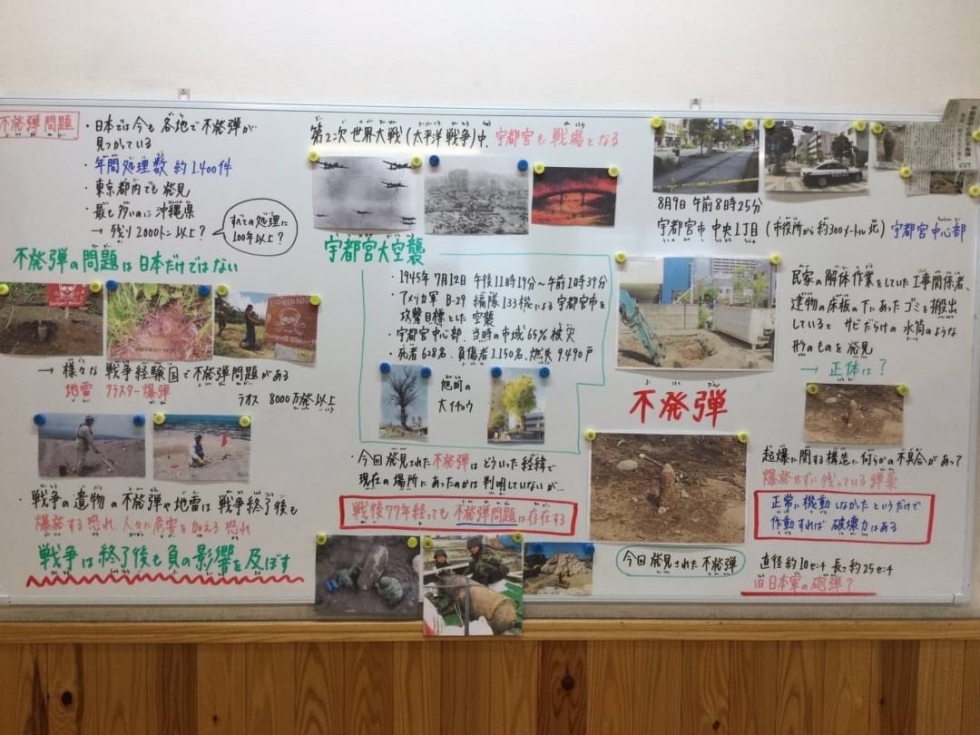 不発弾問題
・日本では今も各地で不発弾が
見つかっている
・年間処理数 約1,400件
・東京都内でも発見
・最も多いのは沖縄県
→ 残り2000トン以上?
すべての処理に
100年以上?
不発弾の問題は日本だけではない
→ 様々な戦争経験国で不発弾問題がある
地雷 クラスター爆弾
ラオス 8000万発以上
・戦争の遺物の不発弾や地雷は戦争終了後も
爆発する恐れ、人々に危害を加える恐れ
戦争は終了後も負の影響を及ぼす
第2次世界大戦(太平洋戦争)中、宇都宮も戦場となる
宇都宮大空襲
・1945年7月12日 午後11時19分〜午前1時39分
・アメリカ軍 B-29 編隊133機による宇都宮市を
攻撃目標とした空襲
・宇都宮中心部、当時の市域65%被災
・死者628名、負傷者1,150名、焼失9,490戸
旭町の
大イチョウ
・今回発見された不発弾はどういった経緯で
現在の場所にあったのかは判明していないが…
戦後77年経っても不発弾問題は存在する
8月9日 午前8時25分
宇都宮市 中央1丁目(市役所から約300メートル北)宇都宮中心部
民家の解体作業をしていた工事関係者、
建物の床板の下にあったゴミを搬出
していると サビだらけの水筒のような
形のものを発見
→ 正体は?
不発弾
起爆に関する構造に何らかの不具合があって
爆発せずに残っている弾薬
正常に機動しなかたというだけで
作動すれば破壊力はある
今回発見された不発弾
直径約10センチ 長さ約25センチ
旧日本軍の砲弾?